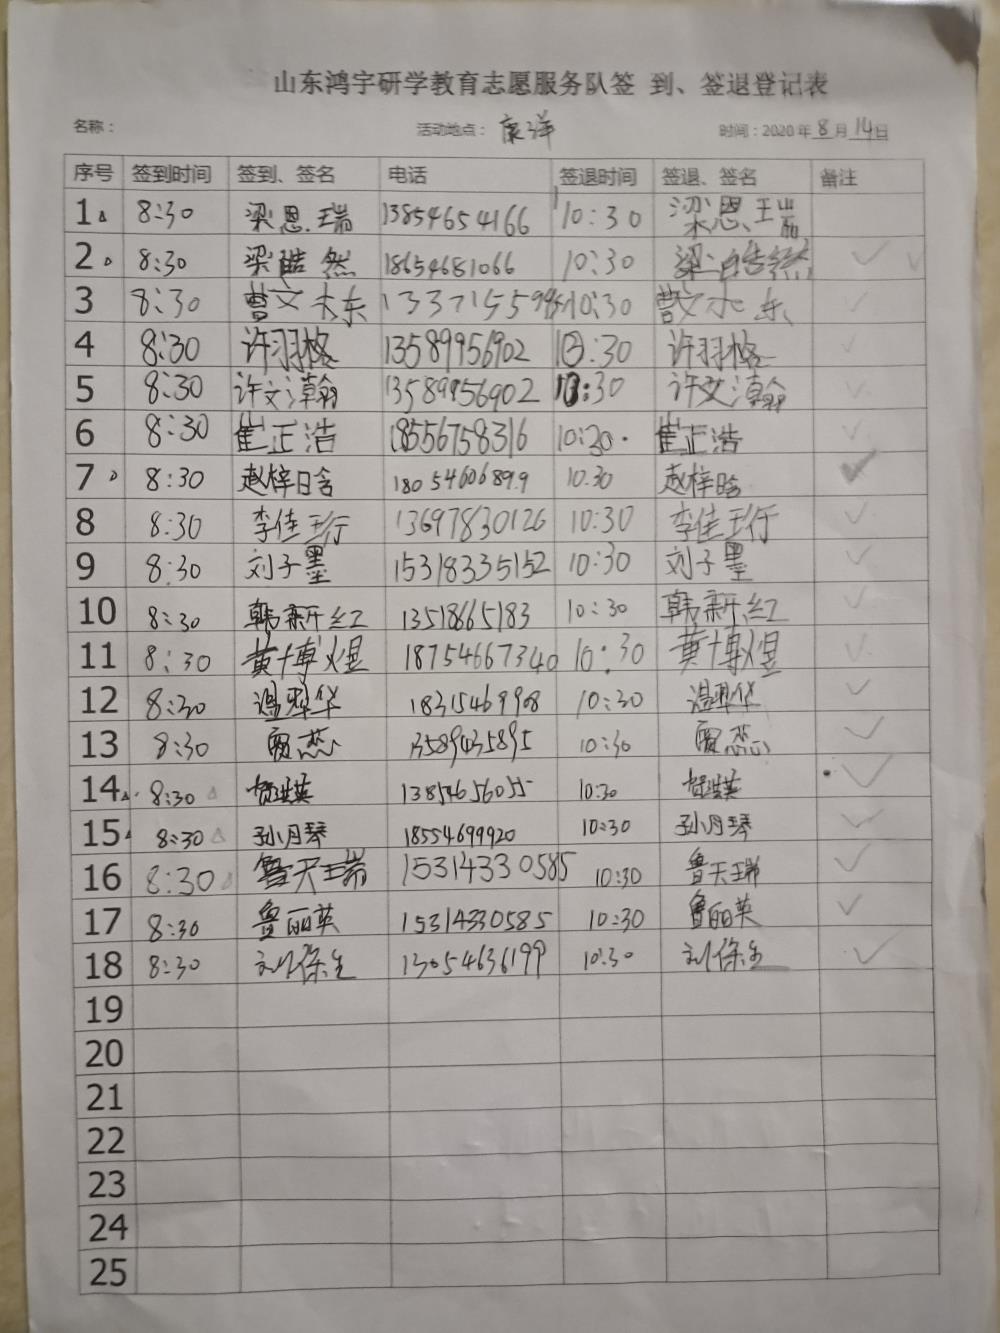 山东鸿宇研学教育志愿服务队签 到、签退登记表
名称： 活动地点： 康洋 时间：2020年8月14日
序号 签到时间 签到、签名 电话 签退时间 签退、签名 备注
1 8:30 梁恩瑞 13854654166 10:30 梁恩瑞
2 8:30 梁皓然 18654681066 10:30 梁皓然
3 8:30 曹文木东 10:30 曹文木东
4 8:30 许羽格 13589956902 10:30 许羽格
5 8:30 许文瀚 13589956902 10:30 许文瀚
6 8:30 崔正浩 18556758316 10:30 崔正浩
7 8:30 赵梓晗 18054606899 10:30 赵梓晗
8 8:30 李佳珩 13697830126 10:30 李佳珩
9 8:30 刘子墨 15318335152 10:30 刘子墨
10 8:30 韩新红 13518665183 10:30 韩新红
11 8:30 黄博煜 18754667340 10:30 黄博煜
12 8:30 18315469908 10:30
13 8:30 13589435895 10:30
14 8:30 13854656055 10:30
15 8:30 孙月琴 18554699920 10:30 孙月琴
16 8:30 鲁天瑞 15314330585 10:30 鲁天瑞
17 8:30 鲁丽英 15314330585 10:30 鲁丽英
18 8:30 刘保生 13054636199 10:30 刘保生
19
20
21
22
23
24
25